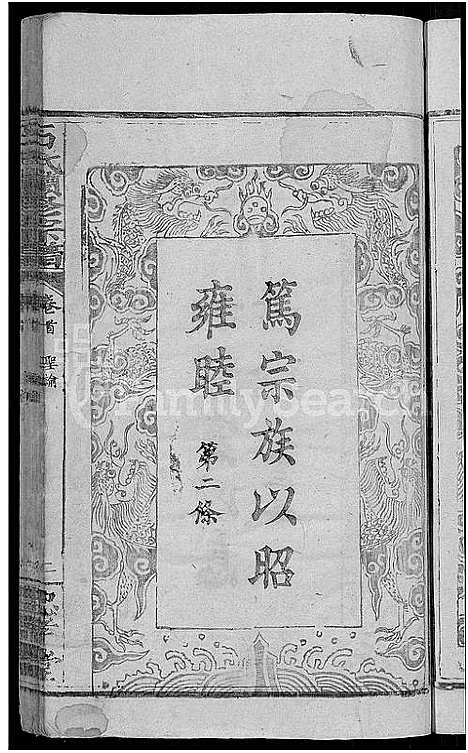 篤宗族以昭
雍睦
第二條
卷首
聖諭
FamilySearch